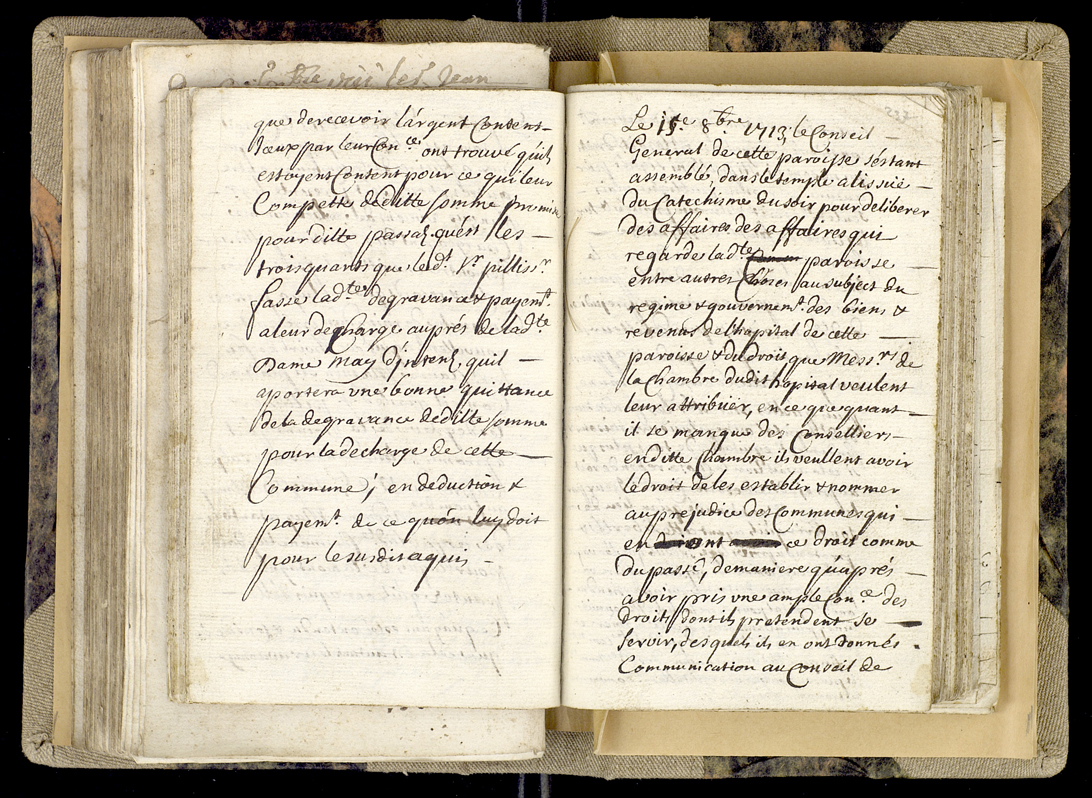 que de recevoir l'argent Content
Jceux par leur Con.ce ont trouvé qu'ils
estoyent Content pour ce qui leur
Compette déditte somme promise
pour ditte passaõ. qu'est les
trois quarts que led.t Sr pillis.r
fasse lad.te degravance & payem.t
a leur decharge auprés de lad.te
Dame may D'jntens. quil
aportera vne bonne quittance
de la degravance déditte somme
pour la decharge de cette
Commune; en deduction &
payem.t de ce qu'on luy doit
pour le susdit aquis
Le 15.e 8.bre 1713 le Conseil
General de cette paroisse s'éstant
assemblé, dans le temple a lissuë
du Catechisme du soir pour deliberer
des affaires des affaires qui
regarde lad.te paroisse
entre autres Choses au subject du
regime & gouvernem.t des biens &
revenus de l'hopital de cette
paroisse & du drois que Mess.rs de
la Chambre dudit hopital veulent
leur attribüer, en ce que quant
il se manque des Conselliers
en ditte Chambre ils veullent avoir
le droit de les establir & nommer
au prejudice des Communes qui
en ont ce droit comme
du passé, de maniere qu'aprés
avoir pris vne ample Con.ce des
droits dont ils pretendent se
servir, desquels ils en ont donnés
Communication au Conseil de